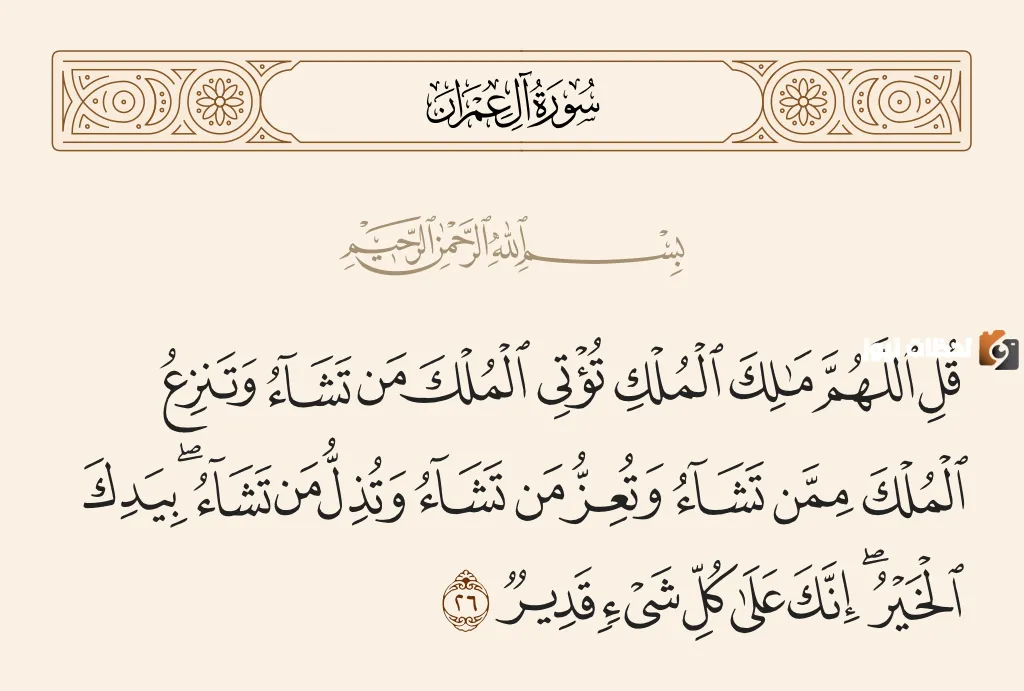 سُورَةُ آلِ عِمْرَانَ
بِسْمِ ٱللَّهِ ٱلرَّحْمَٰنِ ٱلرَّحِيمِ
قُلِ ٱللَّهُمَّ مَـٰلِكَ ٱلْمُلْكِ تُؤْتِى ٱلْمُلْكَ مَن تَشَآءُ وَتَنزِعُ
ٱلْمُلْكَ مِمَّن تَشَآءُ وَتُعِزُّ مَن تَشَآءُ وَتُذِلُّ مَن تَشَآءُ ۖ بِيَدِكَ
ٱلْخَيْرُ ۖ إِنَّكَ عَلَىٰ كُلِّ شَىْءٍ قَدِيرٌ ٢٦